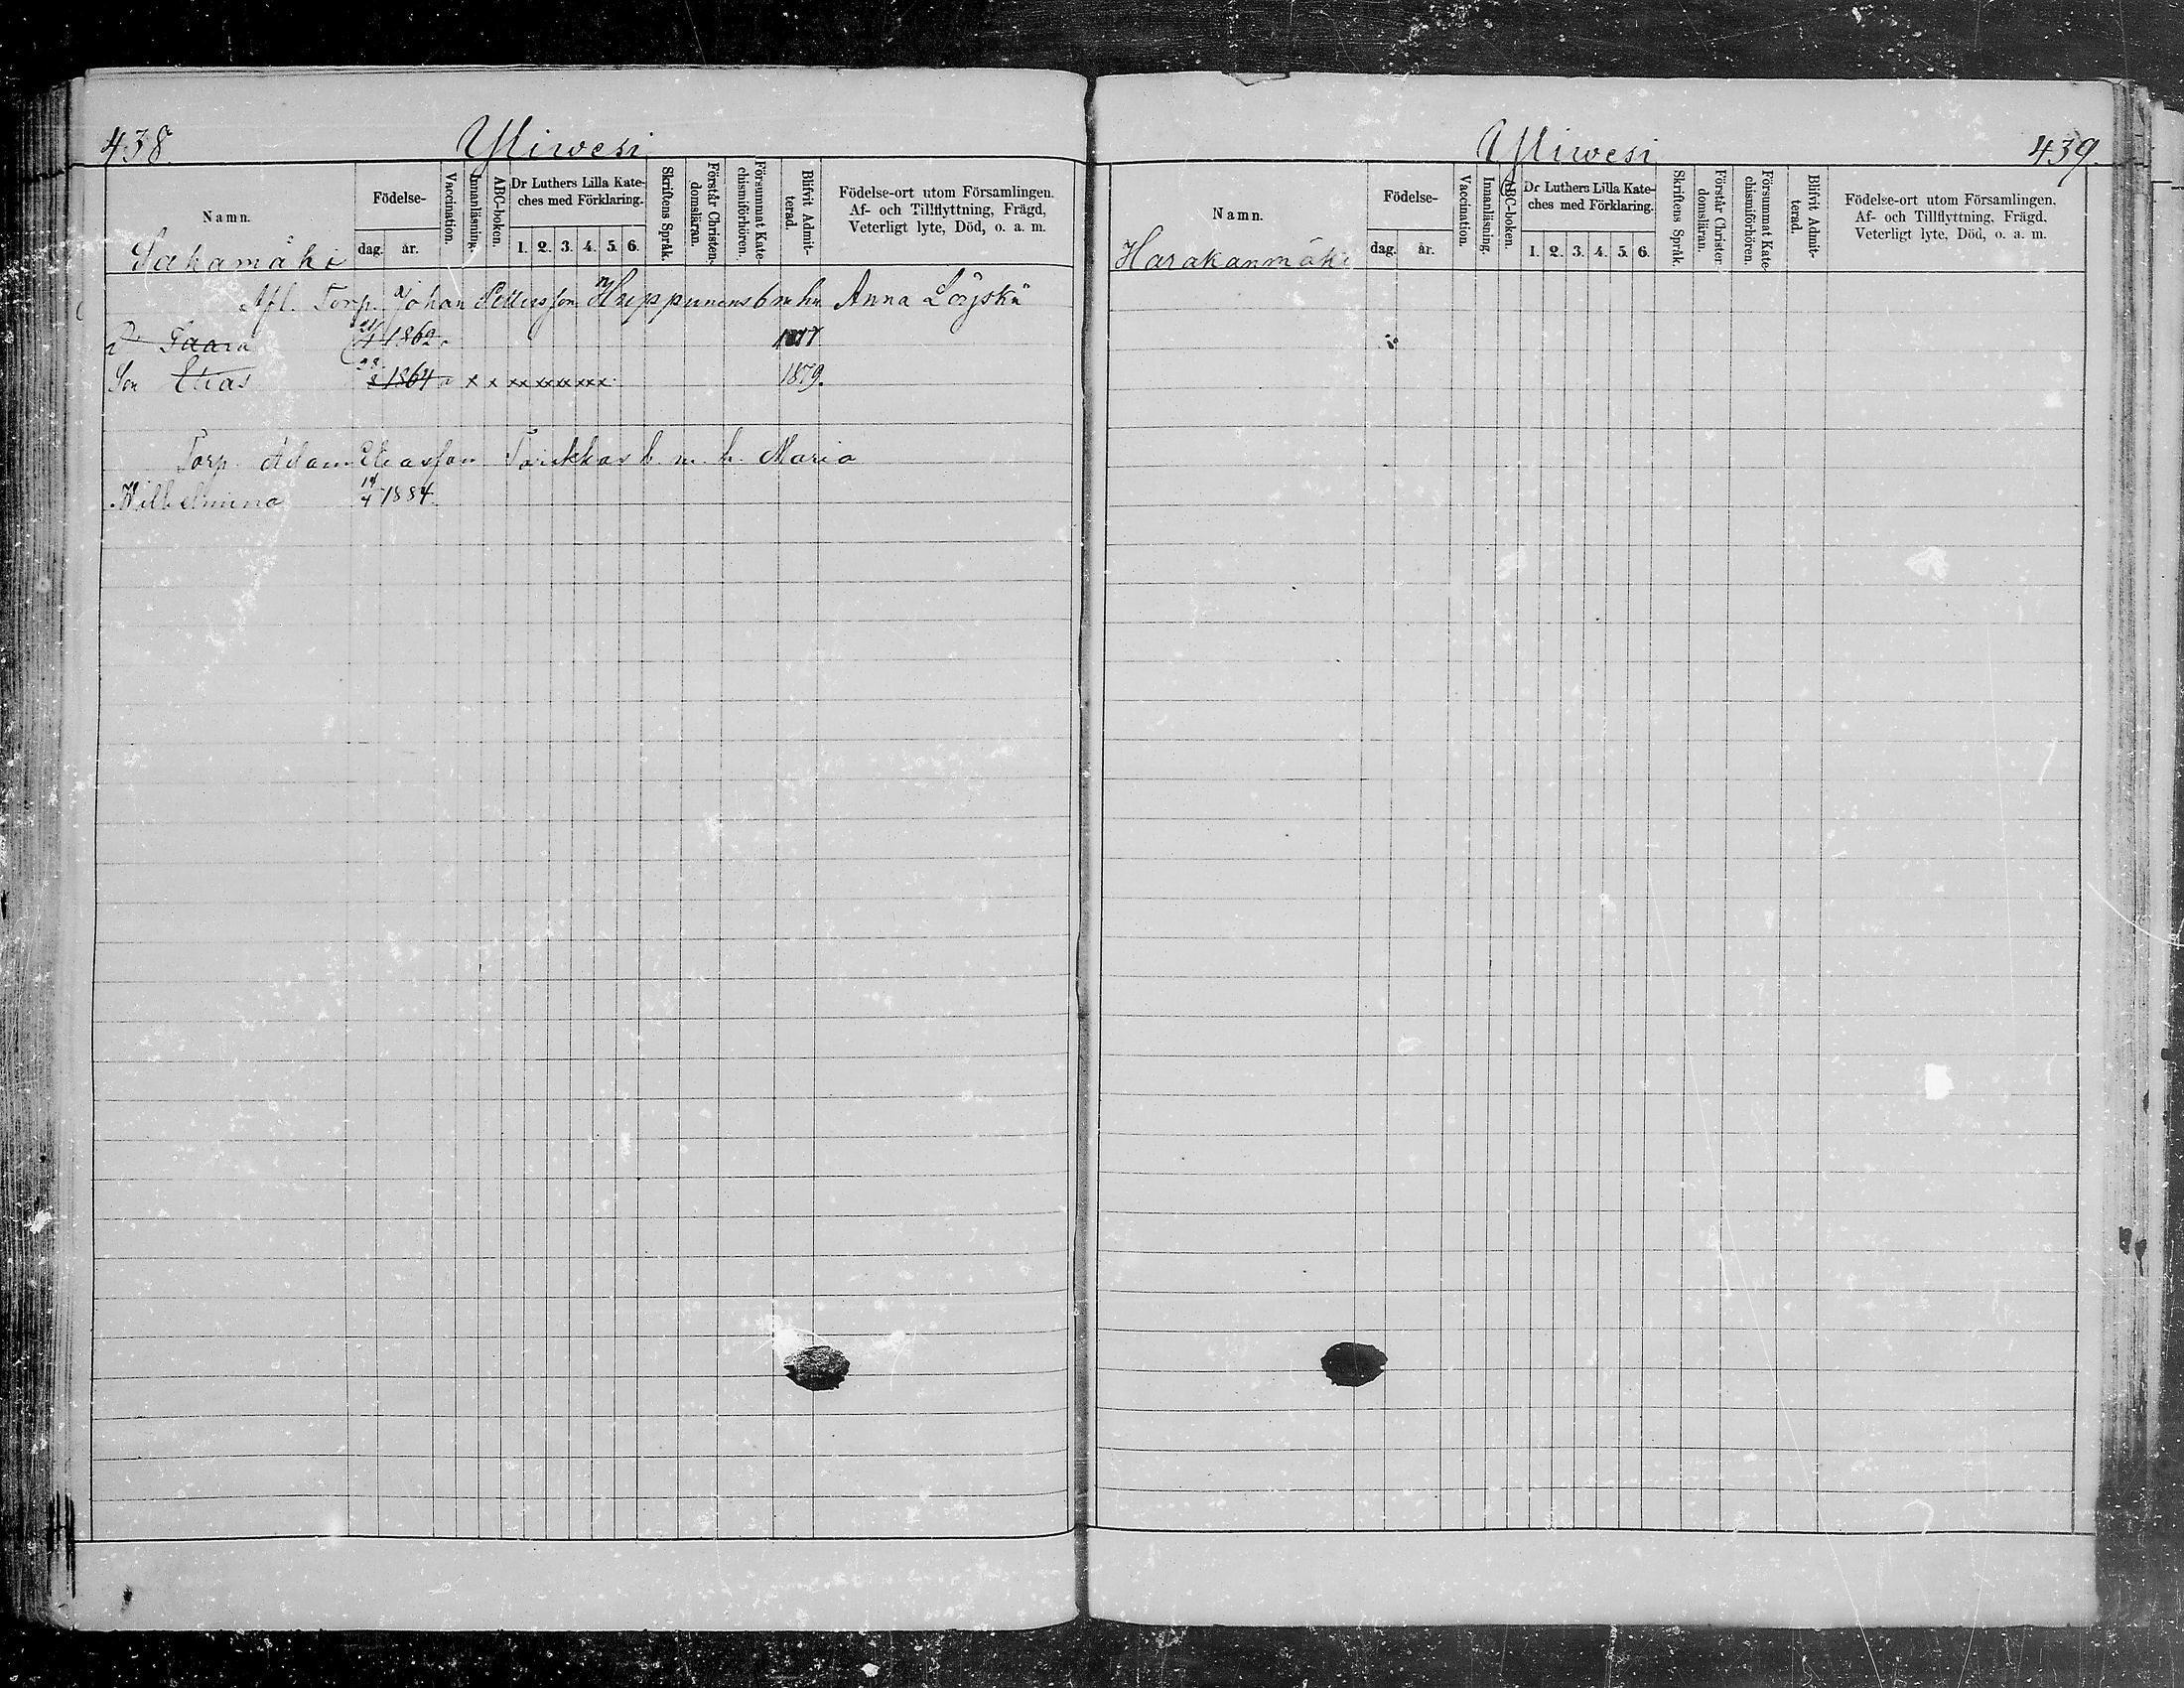 438. Yliwesi
Namn. Födelse- dag. år. Vaccination. Innanläsning. ABC-boken. Dr Luthers Lilla Kate-ches med Förklaring. 1. 2. 3. 4. 5. 6. Skriftens Språk. Förstår Christen-domsläran. Försummat Kate-chismiförhören. Blifvit Admit-terad. Födelse-ort utom Församlingen. Af- och Tillflyttning, Frägd, Veterligt lyte, Död, o. a. m.
Sahamäki
Afl. Torp. Johan Pettersson Huppunens b m hu Anna Löyskä
D Saara 4 1862 1877
Son Elias 1864 x x xx xxxx xxx 1879.
Torp. Adam Eliasson Toikkas b. m. h. Maria
Wilhelmina 14/4 1884.
Yliwesi 439.
Namn. Födelse- dag. år. Vaccination. Innanläsning. ABC-boken. Dr Luthers Lilla Kate-ches med Förklaring. 1. 2. 3. 4. 5. 6. Skriftens Språk. Förstår Christen-domsläran. Försummat Kate-chismiförhören. Blifvit Admit-terad. Födelse-ort utom Församlingen. Af- och Tillflyttning, Frägd, Veterligt lyte, Död, o. a. m.
Harakanmäki